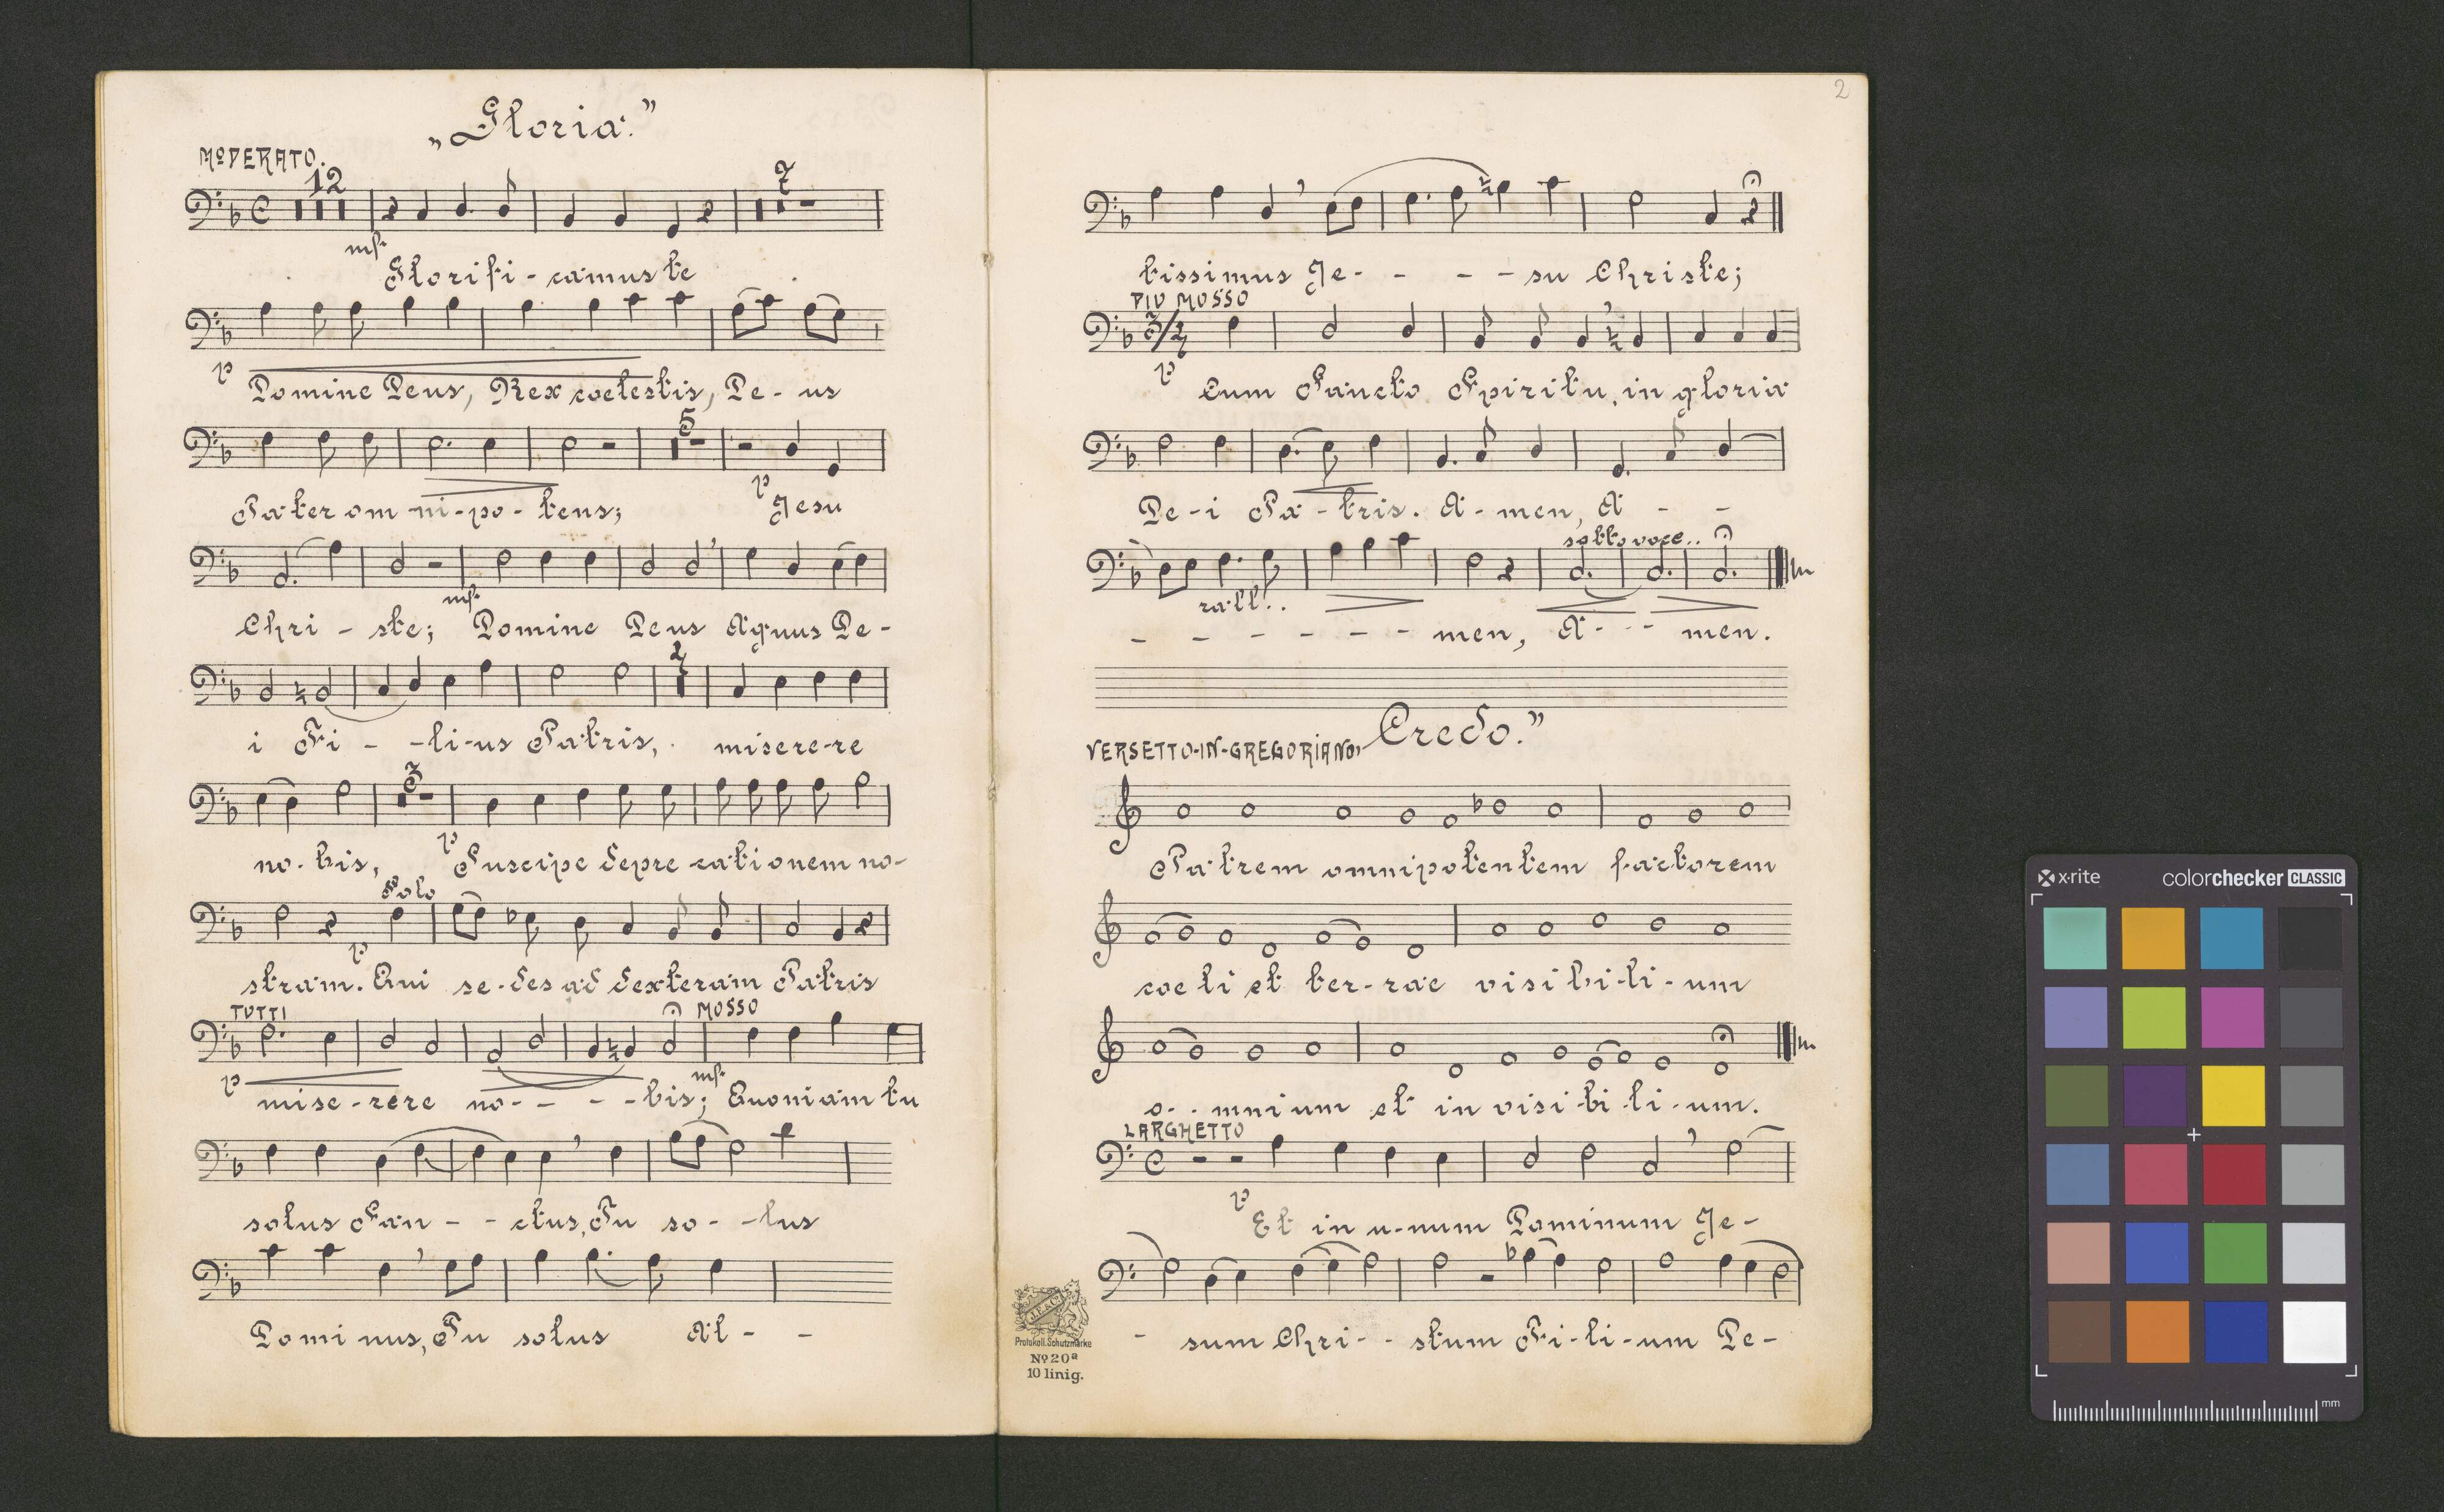 „Gloria."
MODERATO.
12
7
mf.
Glorifi-camus te
p
Domine Deus, Rex coelestis, De-us
5
Pater om-ni-po-tens;
p
Jesu
Chri-ste;
mf.
Domine Deus Agnus De-
2
i Fi--li-us Patris, miserere
3
no-bis,
p
Suscipe depre cationem no-
Solo
stram.
p
Qui se-des ad dexteram Patris
TUTTI
MOSSO
p
mise-rere no----bis;
mf.
Quoniam tu
solus San--ctus, Tu so--lus
Dominus, Tu solus Al--
2
tissimus Je----su Christe;
PIU MOSSO
3/4
p
Cum Sancto Spiritu, in gloria
De-i Pa-tris. A-men, A--
sotto voce..
rall..
------men, A---men.
VERSETTO-IN-GREGORIANO, Credo."
Patrem omnipotentem factorem
coeli et ter-rae visibi-li-um
o--mnium et in visi-bi-li-um.
LARGHETTO
p
Et in u-num Dominum Je-
-sum Chri--stum Fi-li-um De-
Protokoll. Schutzmarke
No 20a
10 linig.
x-rite
colorchecker CLASSIC
mm